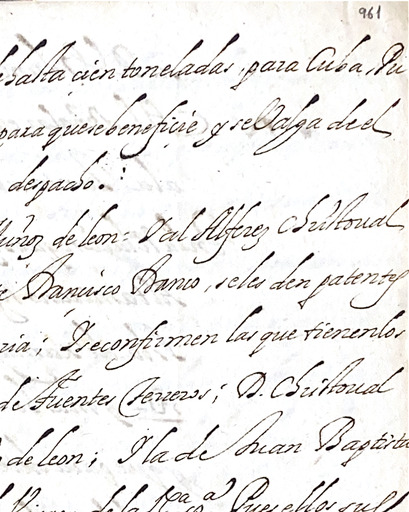 961
hasta cien toneladas, para Cuba, Pu
para que se beneficie y se Valga de el
despacho.
uñoz de leon = Y al Alferez Christoual
Francisco Franco, se les den patentes
ria; Y se confirmen las que tienen los
de Fuentes Terreros; D. Christoual
de leon; Y la de Juan Baptista
de la Rª Aª Pues ellos su